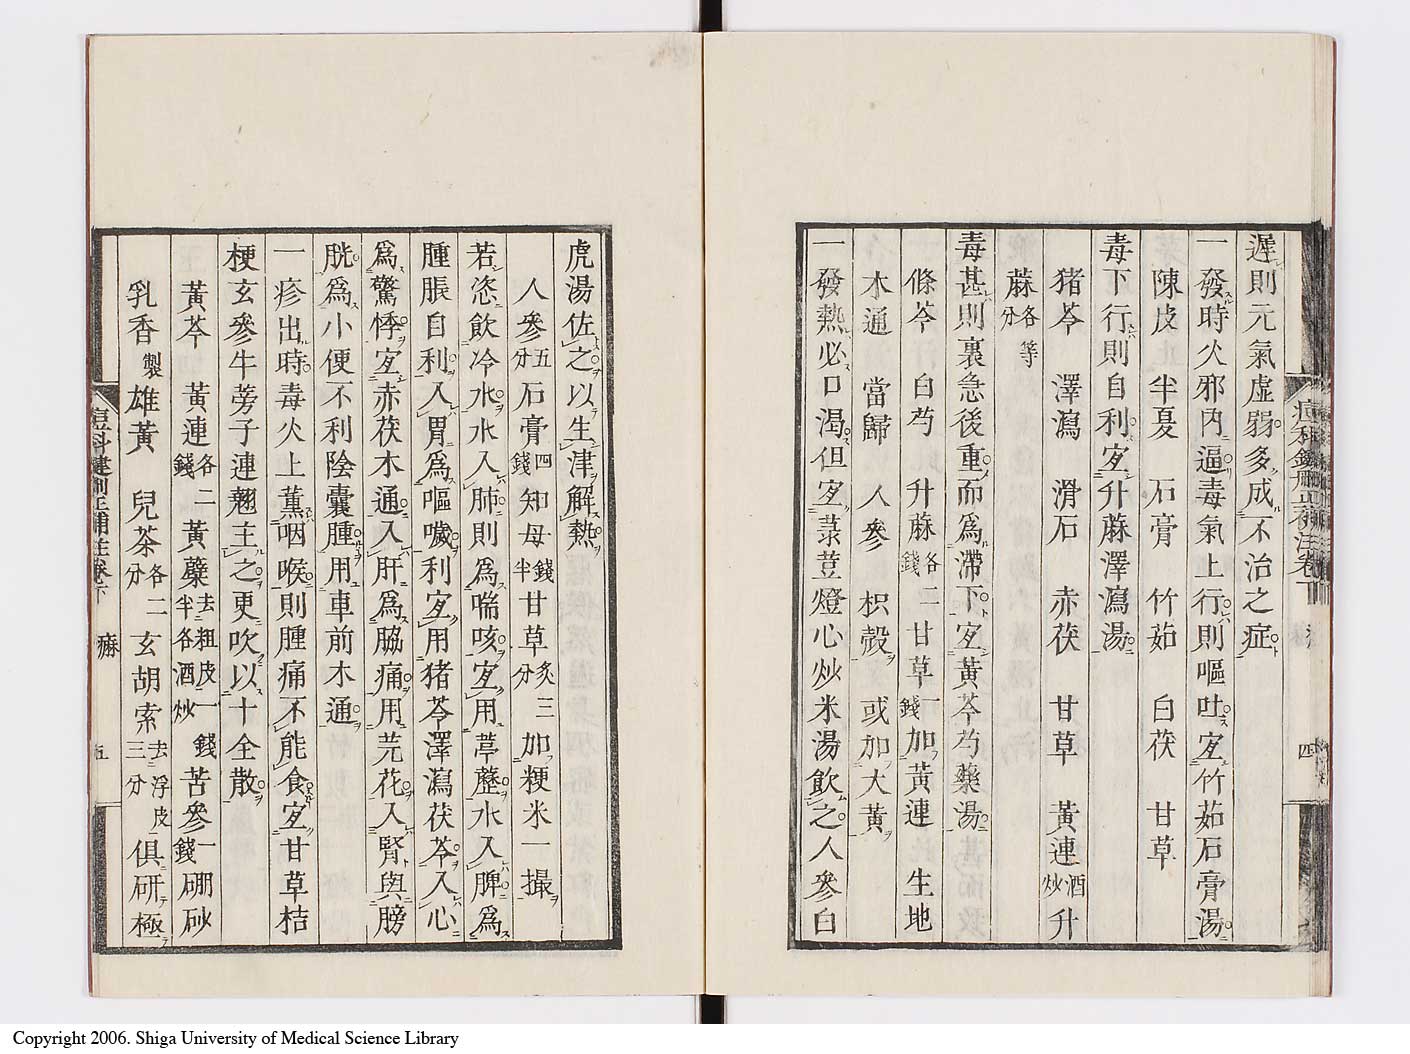 遲則元氣虛弱多成不治之症
一發時火邪內逼毒氣上行則嘔吐宜竹茹石膏湯
陳皮 半夏 石膏 竹茹 白茯 甘草
毒下行則自利宜升蔴澤瀉湯
猪苓 澤瀉 滑石 赤茯 甘草 黃連酒炒 升
蔴各等分
毒甚則裏急後重而爲滯下宜黃芩芍藥湯
條芩 白芍 升蔴各二錢 甘草一錢 加黃連 生地
木通 當歸 人參 枳殼 或加大黃
一發熱必口渴但宜菉荳燈心炒米湯飲之人參白
痘科鍵刪正補注卷下 痳 四
虎湯佐之以生津解熱
人參五分 石膏四錢 知母錢半 甘草炙三分 加粳米一撮
若恣飲冷水水入肺則爲喘咳宜用葶藶水入脾爲
腫脹自利入胃爲嘔噦利宜用猪苓澤瀉茯苓入心
爲驚悸宜赤茯木通入肝爲脇痛用芫花入腎與膀
胱爲小便不利陰囊腫用車前木通
一疹出時毒火上薫咽喉則腫痛不能食宜甘草桔
梗玄參牛蒡子連翹主之更吹以十全散
黃芩 黃連各二錢 黃蘗去粗皮一錢半各酒炒 苦參一錢 硼砂
乳香製 雄黃 兒茶各二分 玄胡索去浮皮三分 俱研極
痘科鍵刪正補註卷下 痳 五
Copyright 2006. Shiga University of Medical Science Library